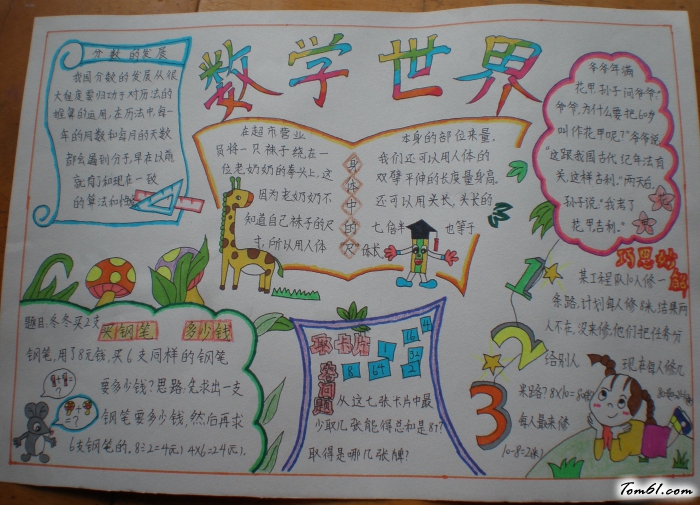 数学世界
分数的发展
我国分数的发展从很
大程度要归功于对历法的
推算的运用,在历法中每一
年的月数和每月的天数
都会遇到分子,早在以前
就有了如现在一致
的算法和
在超市营业
员将一只袜子绕在一
位老奶奶的拳头上,这
因为老奶奶不
知道自己袜子的尺
寸,所以用人体
身体中的“尺”
本身的部位来量。
我们还可以用人体的
双臂平伸的长度量身高。
还可以用头长,头长的
七倍半 也等于
身长
爷爷年满
花甲,孙子问爷爷:“
爷爷,为什么要把60岁
叫作花甲呢?”爷爷说:
“这跟我国古代纪年法有
关,这样吉利。”两天后,
孙子说:“我考了
花甲吉利。”
题目:冬冬买2支
买钢笔 多少钱
钢笔,用了8元钱,买6支同样的钢笔
要多少钱?思路:先求出一支
钢笔要多少钱,然后再求
6支钢笔的。8÷2=4(元) 4×6=24(元)。
取卡片
问题
64
32
16
8
4
2
1
从这七张卡片中最
少取几张能得总和是83?
取得是哪几张牌?
巧思妙解
某工程队10人修一
条路,计划每人修8米,结果两
人不在,没来修,他们把任务分
给别人 现在每人修几
米路?8×10=80(米)
每人最来修
10-8=2(米)
1
2
3
Tom61.com